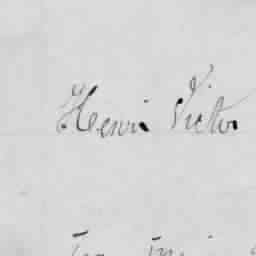 Henri Victor